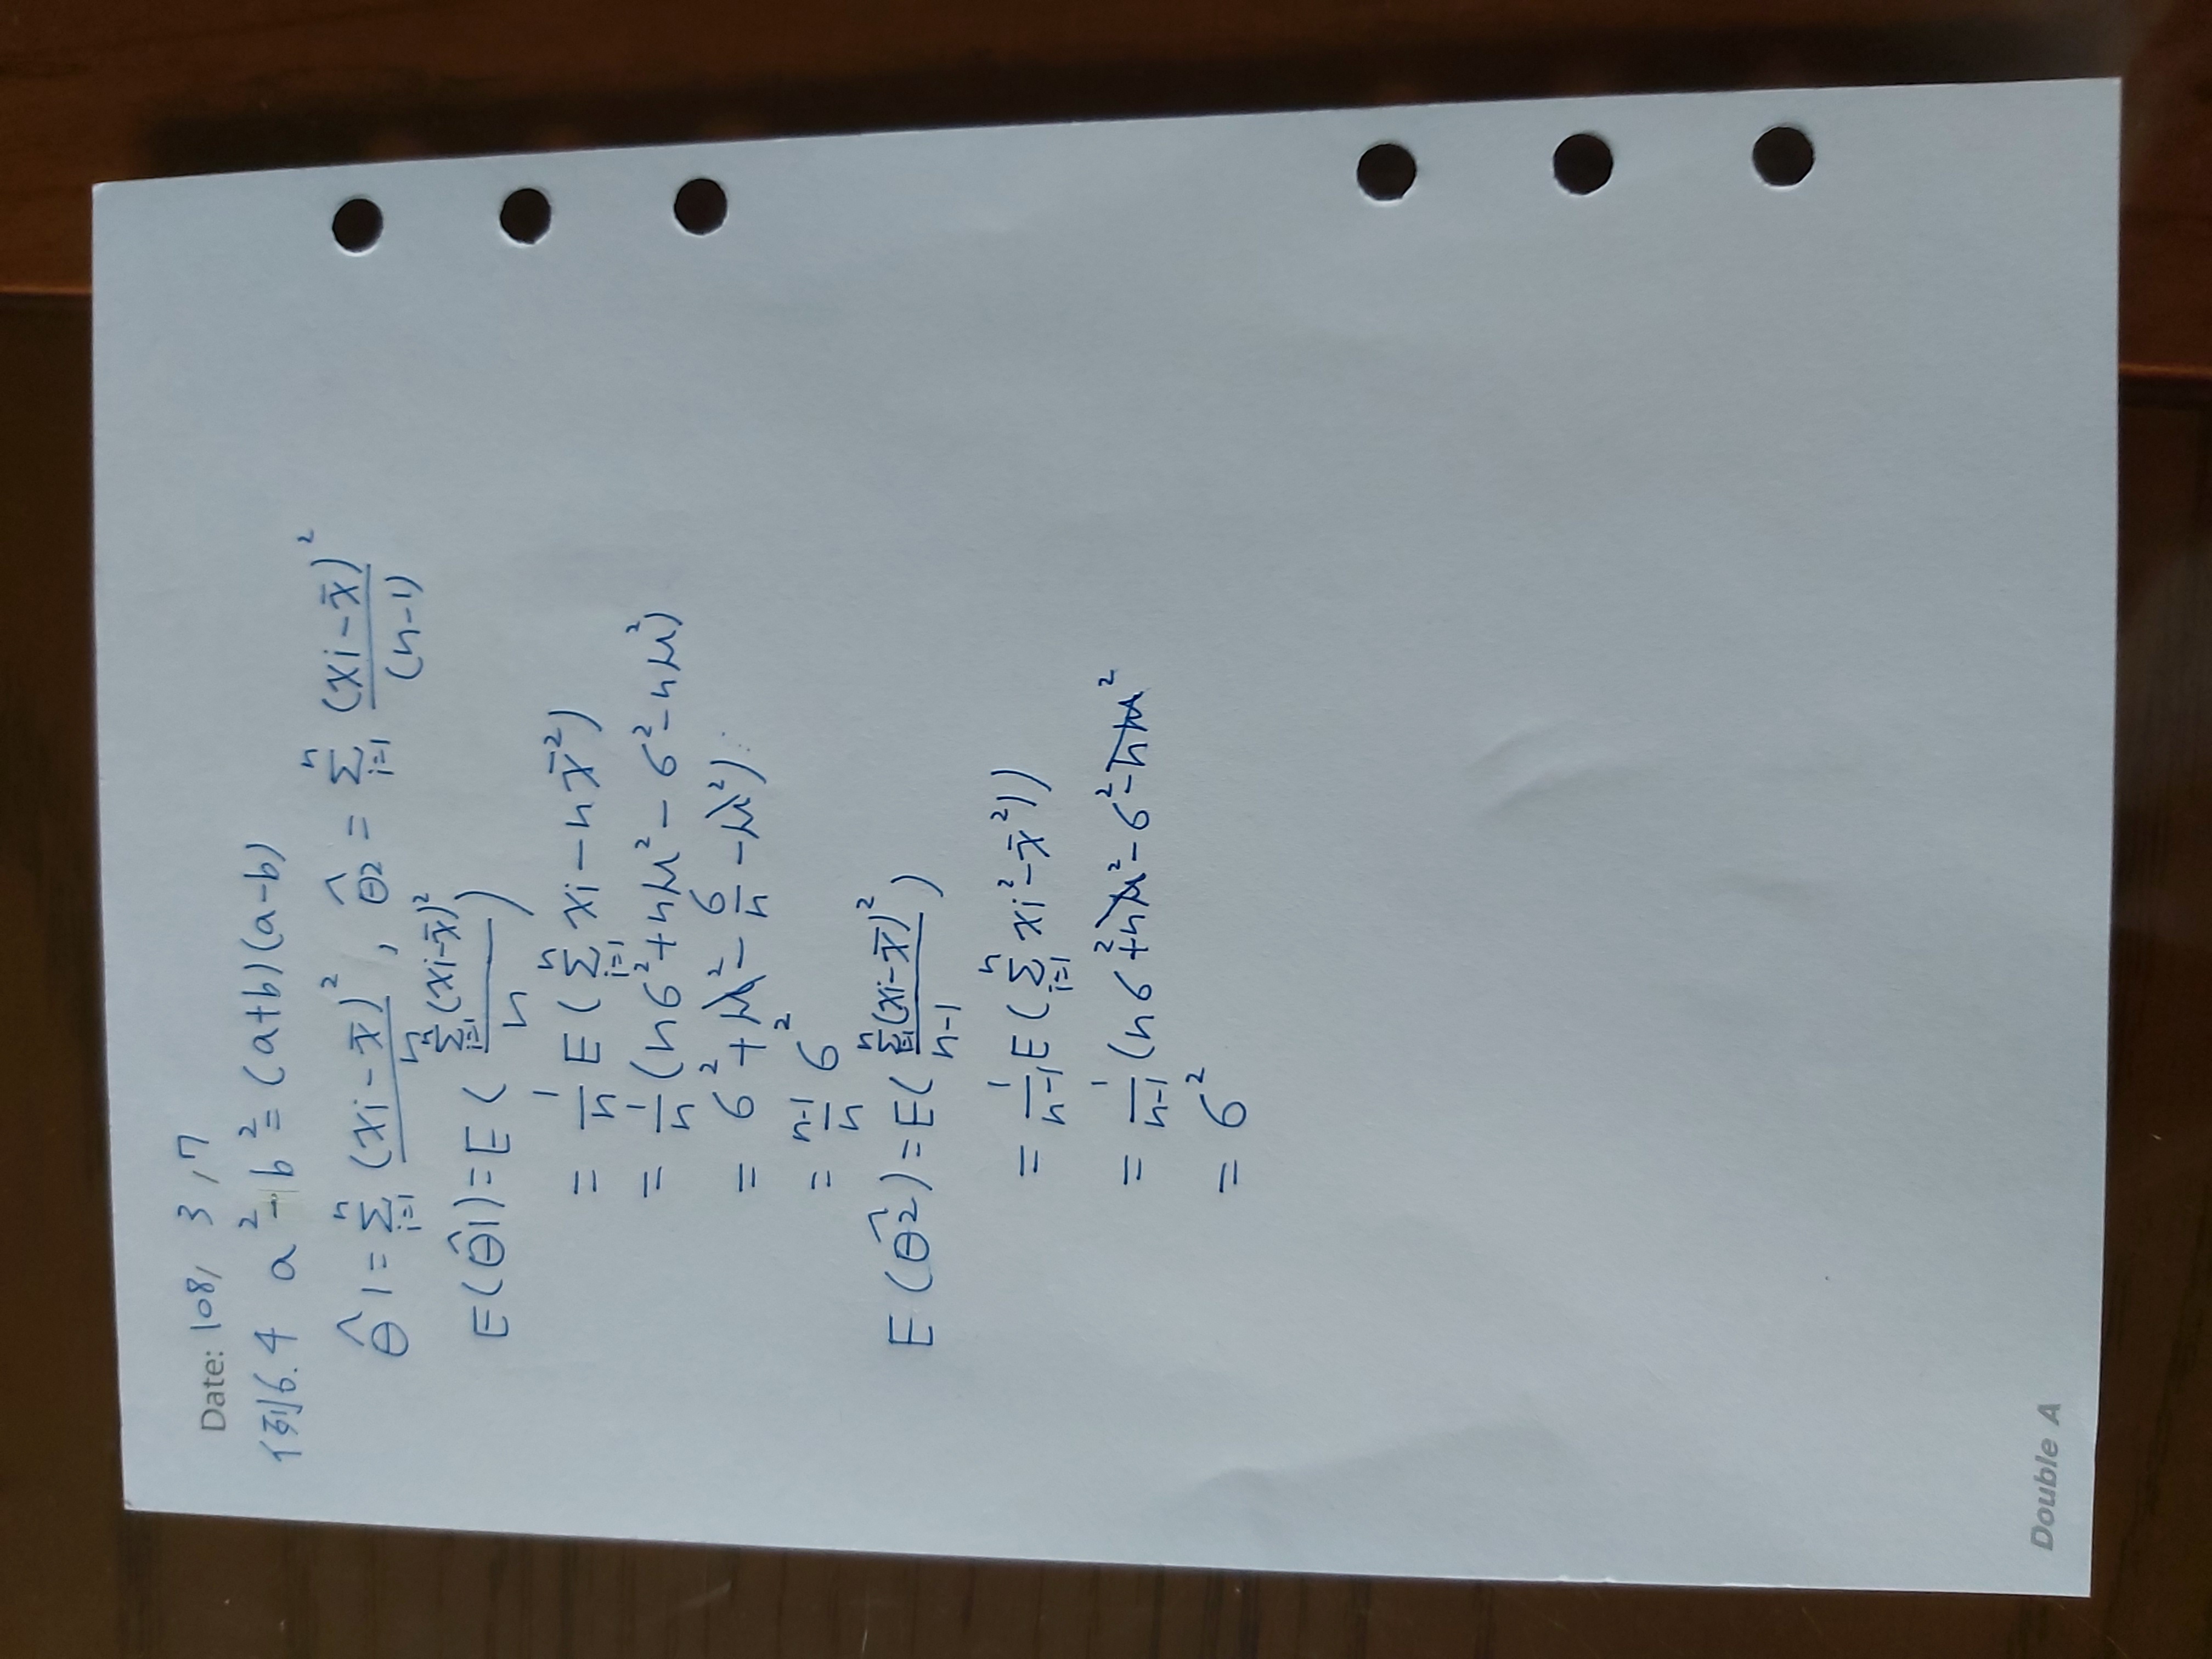 Date: 108/ 3 /7
例6.4 a² - b² = (a+b)(a-b)
θ̂1 = Σⁿᵢ₌₁ (xi - x̄)²/n , θ̂2 = Σⁿᵢ₌₁ (xi - x̄)²/(n-1)
E(θ̂1) = E( Σⁿᵢ₌₁(xi-x̄)²/n )
= 1/n E( Σⁿᵢ₌₁ xi - n x̄² )
= 1/n (nσ² + nμ² - σ² - nμ²)
= σ² + μ² - σ/n - μ²)
= n-1/n σ²
E(θ̂2) = E( Σⁿᵢ₌₁(xi-x̄)²/n-1 )
= 1/n-1 E( Σⁿᵢ₌₁ xi² - x̄²))
= 1/n-1 (nσ² + nμ² - σ² - nμ²
= σ²
Double A